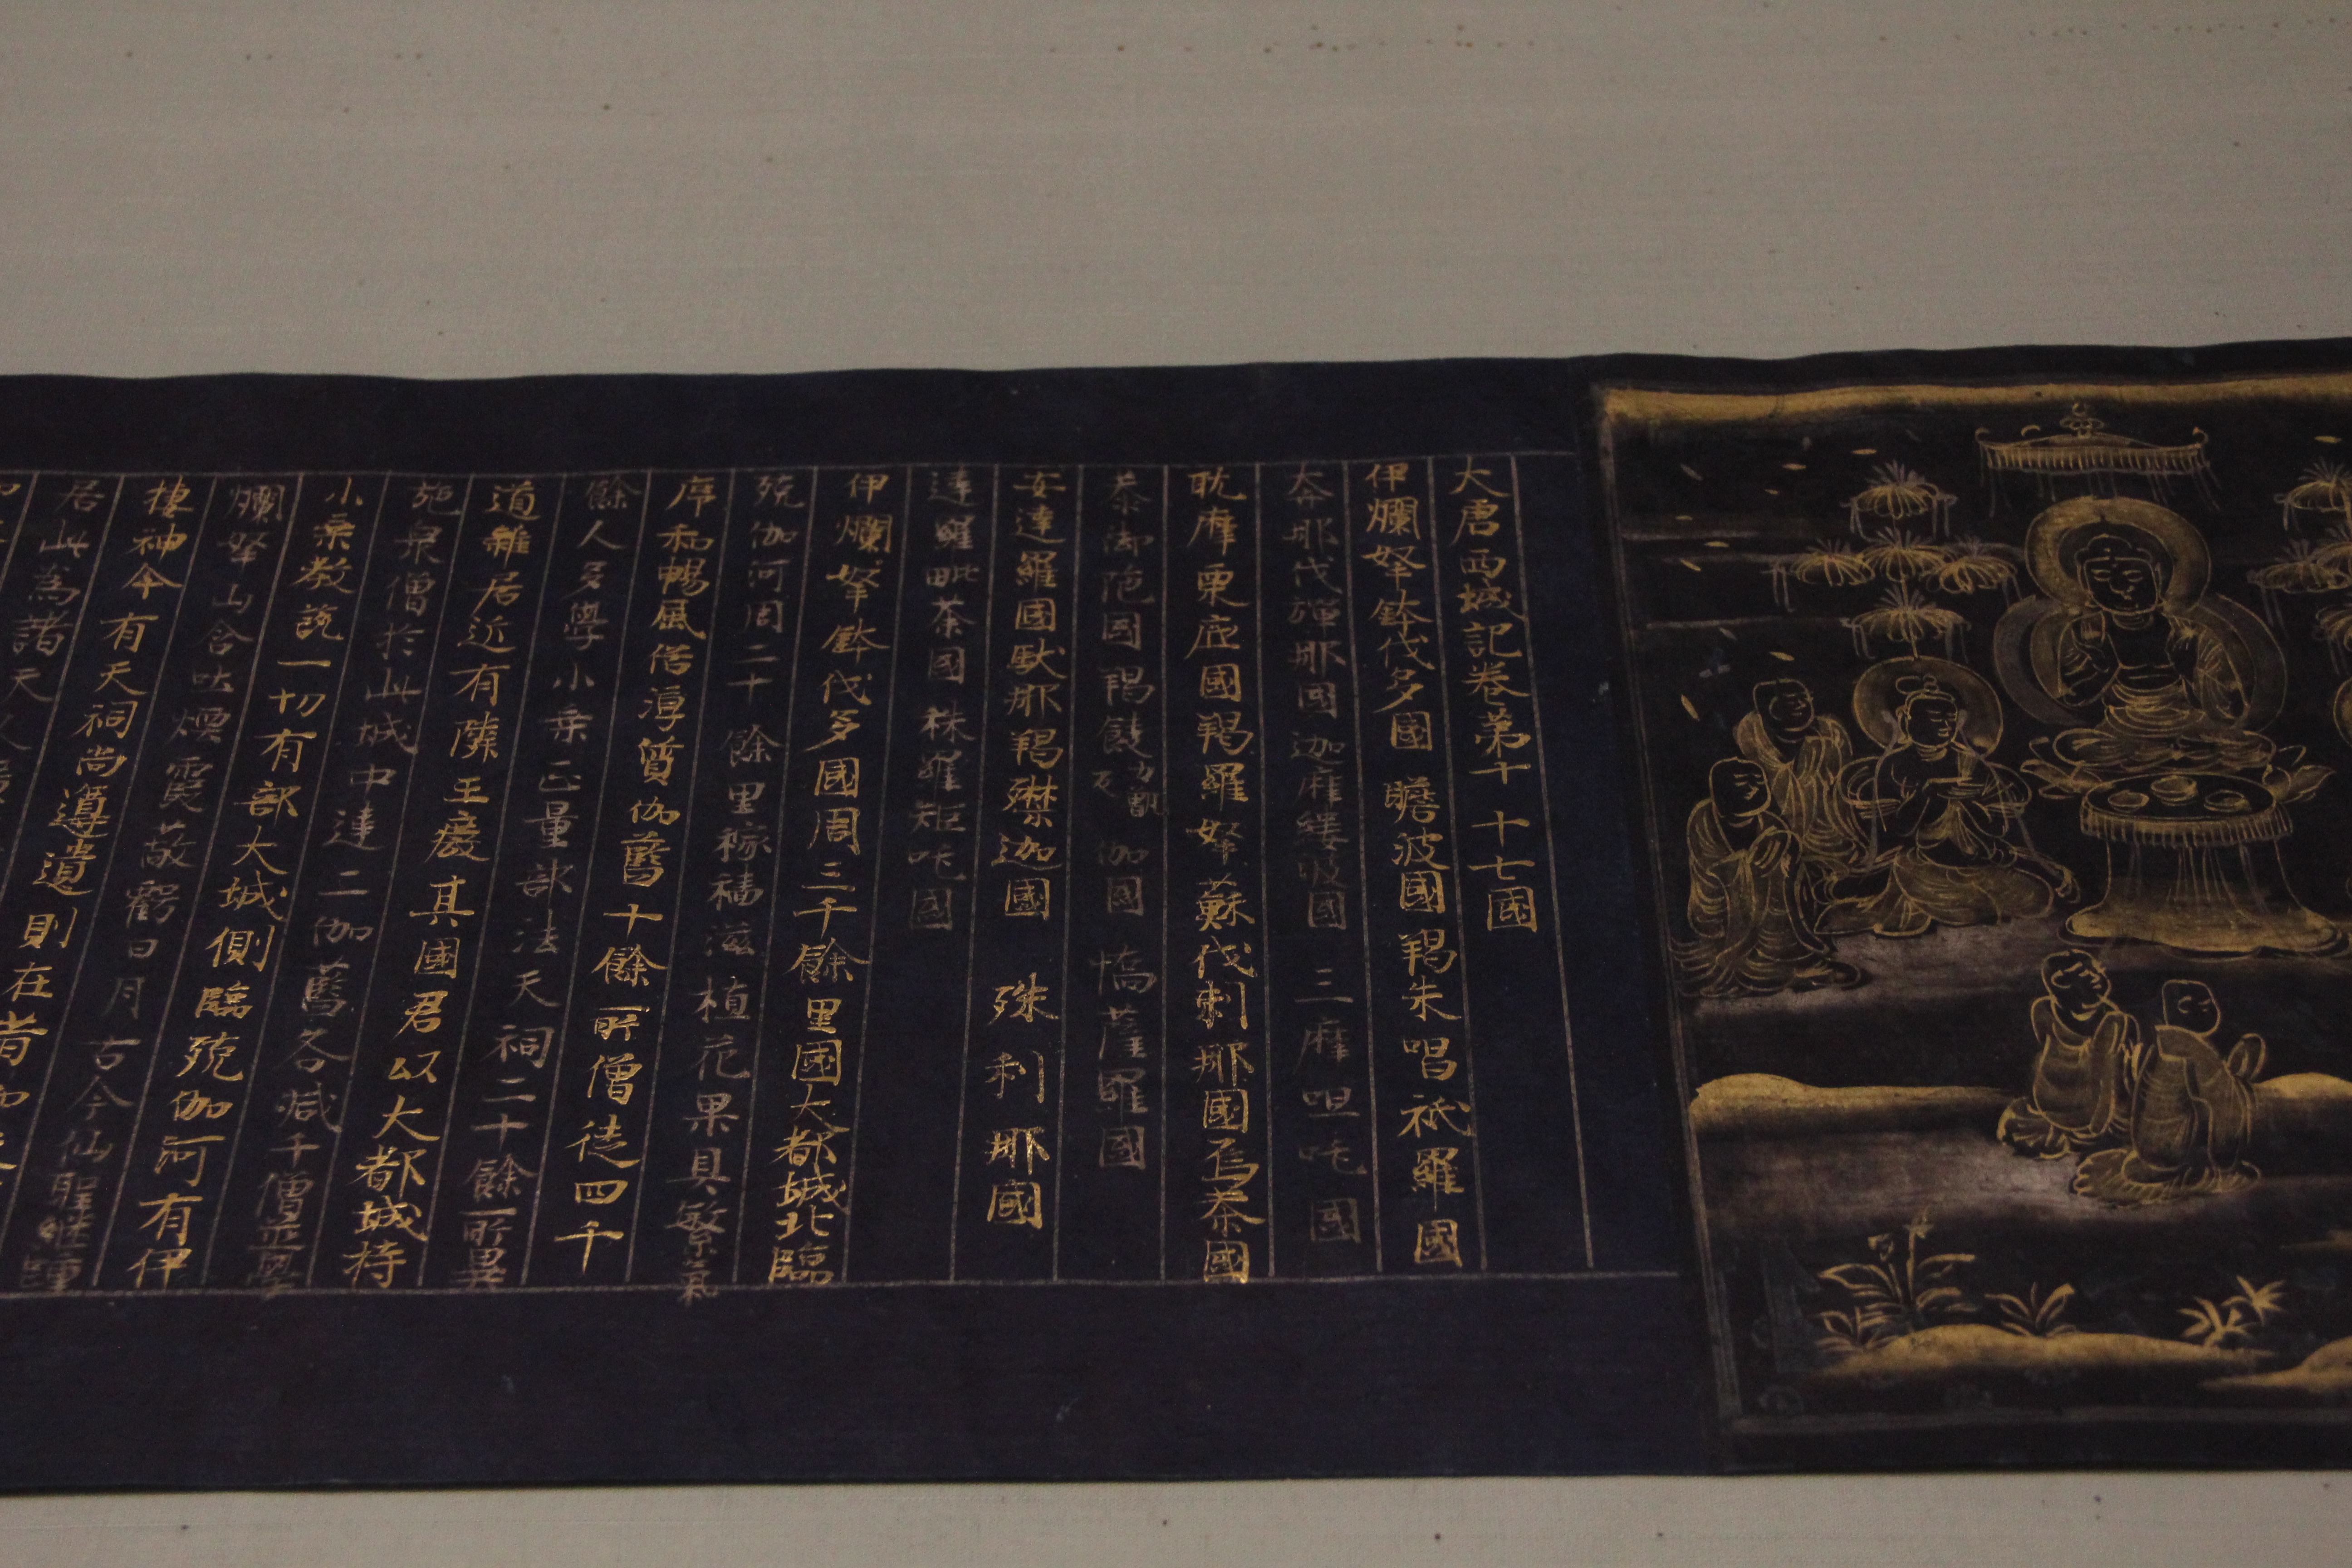 大唐西域記卷第十 十七國
伊爛拏鉢伐多國 瞻波國 羯朱嗢祇羅國
奔那伐彈那國 迦摩縷波國 三摩呾吒國
耽摩栗底國 羯羅拏蘇伐剌那國 烏荼國
恭御陁國 羯餕伽國 憍薩羅國
安達羅國 馱那羯磔迦國 珠利耶國
達羅毗荼國 秣羅矩吒國
伊爛拏鉢伐多國周三千餘里國大都城北臨
殑伽河周二十餘里稼穡滋植花果具繁氣
序和暢風俗淳質伽藍十餘所僧徒四千
餘人多學小乘正量部法天祠二十餘所異
道雜居近有隣王廢其國君以大都城持
施衆僧於此城中建二伽藍各減千僧並學
小乘教說一切有部大城側臨殑伽河有伊
爛拏山含吐煙霞蔽虧日月古今仙聖繼踵
棲神今有天祠尚遵遺則在昔如來
居此爲諸天人